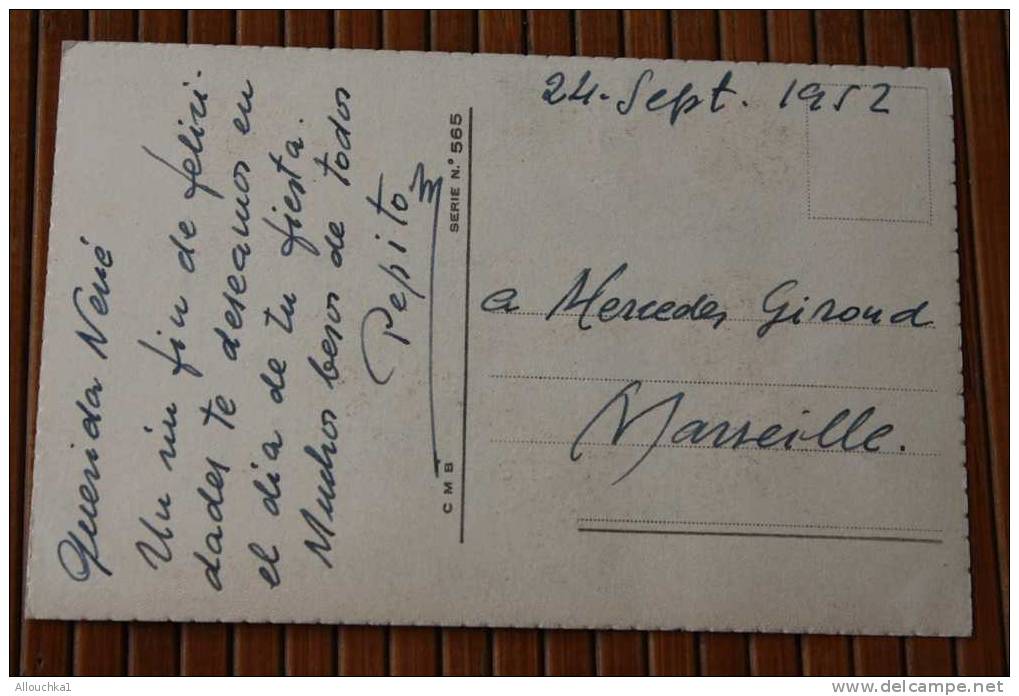 24. Sept. 1952
Querida Nené
Un sin fin de felici-
dades te deseamos en
el dia de tu fiesta.
Muchos besos de todos
Pepito
C M B SERIE N.º 565
a Mercedes Giroud
Marseille.
Allouchka1
www.delcampe.net